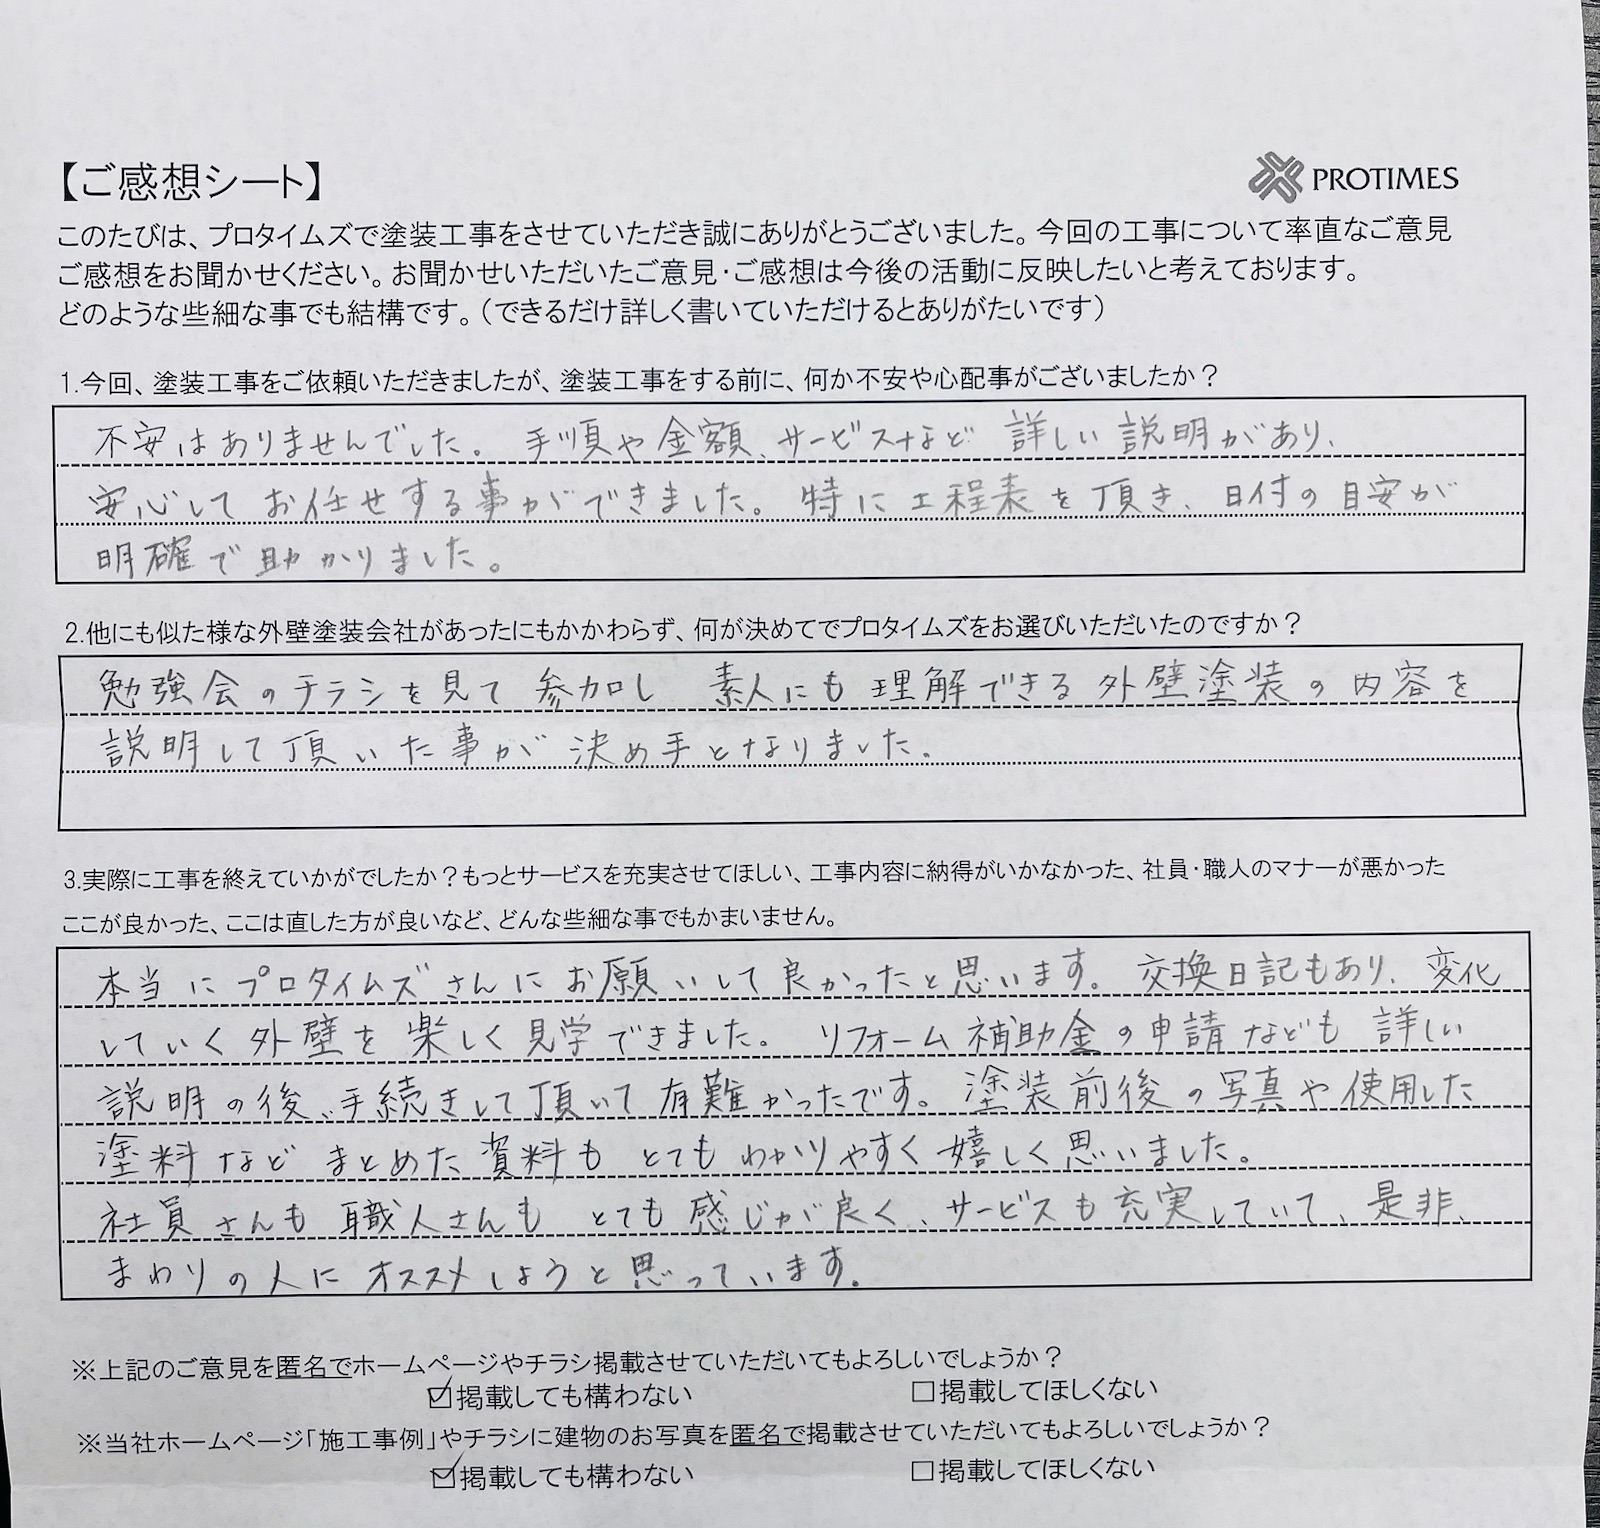 【ご感想シート】
PROTIMES
このたびは、プロタイムズで塗装工事をさせていただき誠にありがとうございました。今回の工事について率直なご意見
ご感想をお聞かせください。お聞かせいただいたご意見・ご感想は今後の活動に反映したいと考えております。
どのような些細な事でも結構です。（できるだけ詳しく書いていただけるとありがたいです）
1.今回、塗装工事をご依頼いただきましたが、塗装工事をする前に、何か不安や心配事がございましたか？
不安はありませんでした。手順や金額、サービスなど詳しい説明があり、
安心してお任せする事ができました。特に工程表を頂き、日付の目安が
明確で助かりました。
2.他にも似た様な外壁塗装会社があったにもかかわらず、何が決めてでプロタイムズをお選びいただいたのですか？
勉強会のチラシを見て参加し 素人にも理解できる外壁塗装の内容を
説明して頂いた事が決め手となりました。
3.実際に工事を終えていかがでしたか？もっとサービスを充実させてほしい、工事内容に納得がいかなかった、社員・職人のマナーが悪かった
ここが良かった、ここは直した方が良いなど、どんな些細な事でもかまいません。
本当にプロタイムズさんにお願いして良かったと思います。交換日記もあり、変化
していく外壁を楽しく見学できました。リフォーム補助金の申請なども詳しい
説明の後、手続きして頂いて有難かったです。塗装前後の写真や使用した
塗料などまとめた資料もとてもわかりやすく嬉しく思いました。
社員さんも職人さんもとても感じが良く、サービスも充実していて、是非、
まわりの人にオススメしようと思っています。
※上記のご意見を匿名でホームページやチラシ掲載させていただいてもよろしいでしょうか？
☑掲載しても構わない □掲載してほしくない
※当社ホームページ「施工事例」やチラシに建物のお写真を匿名で掲載させていただいてもよろしいでしょうか？
☑掲載しても構わない □掲載してほしくない